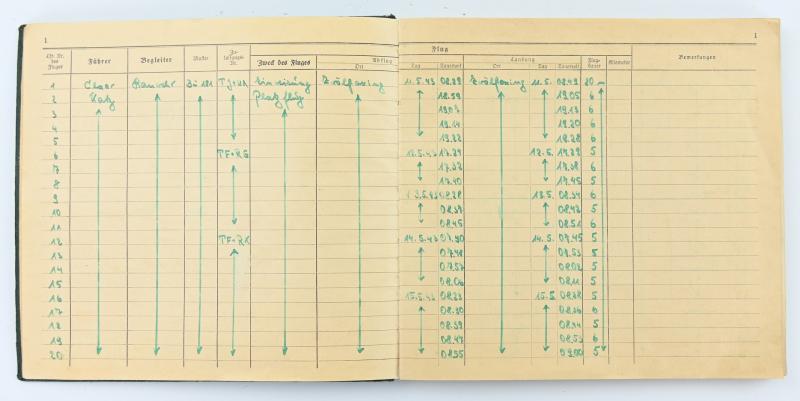 1
1
Flug
Lfd. Nr. des Fluges Führer Begleiter Muster Zu-lassungs-Nr. Zweck des Fluges Abflug Landung Flug-dauer Kilometer Bemerkungen
Ort Tag Tageszeit Ort Tag Tageszeit
1 Bü 181 11.5.43 11.5. 08.49
2 Platzflüg 18.59 19.05 6
3 19.07 19.13 6
4 19.14 19.20 6
5 19.22 19.28 6
6 TF+RG 12.5.43 17.24 12.5. 17.29 5
7 17.32 17.38 6
8 17.40 17.45 5
9 13.5.43 08.28 13.5. 08.34 6
10 08.43 5
11 08.45 08.51 6
12 14.5.43 07.40 14.5. 07.45 5
13 07.48 07.53 5
14 07.57 08.02 5
15 08.06 08.11 5
16 15.5.43 08.23 15.5. 08.28 5
17 08.30 08.36 6
18 08.39 08.44 5
19 08.47 08.53 6
20 08.55 09.00 5